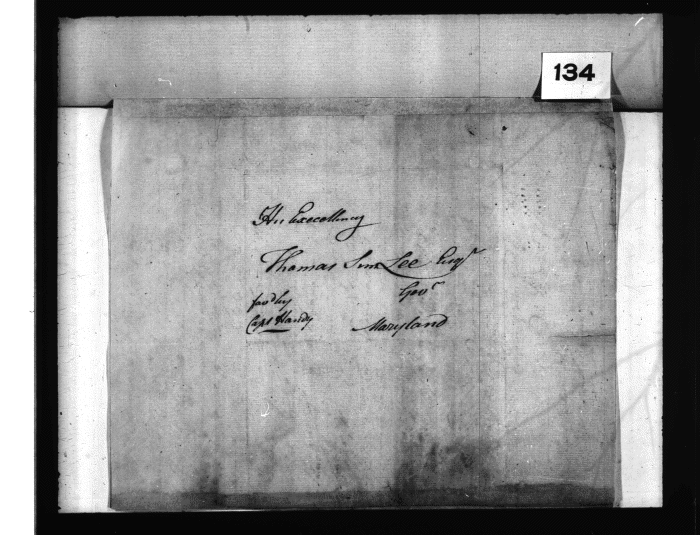 134
His Excellency
Thomas Sim Lee Esqr
Govr
favd by
Capt Handy
Maryland